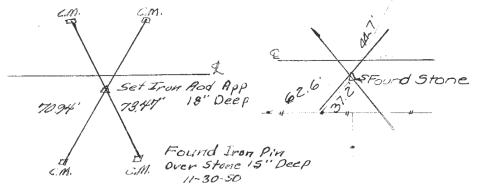 C.M. C.M.
℄
Set Iron Rod App
18" Deep
70.94' 73.47'
Found Iron Pin
Over Stone 15" Deep
11-30-50
C.M. C.M.
44.7'
℄
Found Stone
62.6'
37.2'